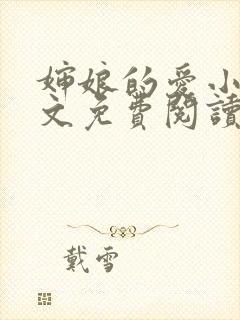 婶娘的爱小
文免费閱讀
戴雪